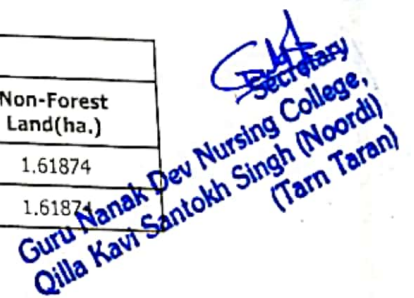 Non-Forest
Land(ha.)
1.61874
1.61874
Secretary
Guru Nanak Dev Nursing College,
Qilla Kavi Santokh Singh (Noordi)
(Tarn Taran)